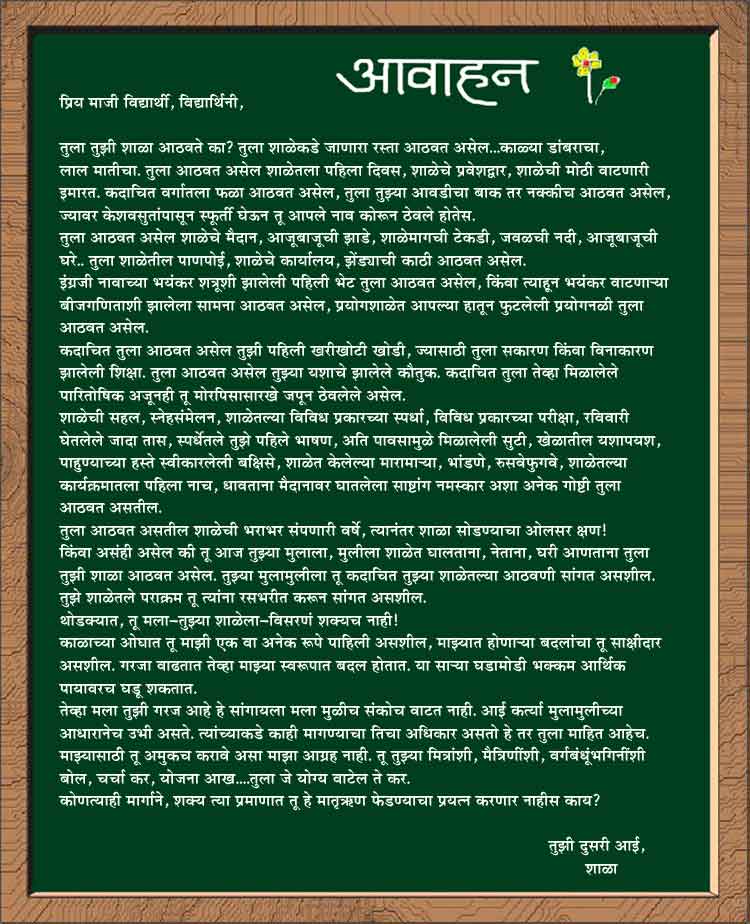 आवाहन
प्रिय माजी विद्यार्थी, विद्यार्थिनी,
तुला तुझी शाळा आठवते का? तुला शाळेकडे जाणारा रस्ता आठवत असेल...काळ्या डांबराचा,
लाल मातीचा. तुला आठवत असेल शाळेतला पहिला दिवस, शाळेचे प्रवेशद्वार, शाळेची मोठी वाटणारी
इमारत. कदाचित वर्गातला फळा आठवत असेल, तुला तुझ्या आवडीचा बाक तर नक्कीच आठवत असेल,
ज्यावर केशवसुतांपासून स्फूर्ती घेऊन तू आपले नाव कोरून ठेवले होतेस.
तुला आठवत असेल शाळेचे मैदान, आजूबाजूची झाडे, शाळेमागची टेकडी, जवळची नदी, आजूबाजूची
घरे.. तुला शाळेतील पाणपोई, शाळेचे कार्यालय, झेंड्याची काठी आठवत असेल.
इंग्रजी नावाच्या भयंकर शत्रूशी झालेली पहिली भेट तुला आठवत असेल, किंवा त्याहून भयंकर वाटणाऱ्या
बीजगणिताशी झालेला सामना आठवत असेल, प्रयोगशाळेत आपल्या हातून फुटलेली प्रयोगनळी तुला
आठवत असेल.
कदाचित तुला आठवत असेल तुझी पहिली खरीखोटी खोडी, ज्यासाठी तुला सकारण किंवा विनाकारण
झालेली शिक्षा. तुला आठवत असेल तुझ्या यशाचे झालेले कौतुक. कदाचित तुला तेव्हा मिळालेले
पारितोषिक अजूनही तू मोरपिसासारखे जपून ठेवलेले असेल.
शाळेची सहल, स्नेहसंमेलन, शाळेतल्या विविध प्रकारच्या स्पर्धा, विविध प्रकारच्या परीक्षा, रविवारी
घेतलेले जादा तास, स्पर्धेतले तुझे पहिले भाषण, अति पावसामुळे मिळालेली सुटी, खेळातील यशापयश,
पाहुण्याच्या हस्ते स्वीकारलेली बक्षिसे, शाळेत केलेल्या मारामाऱ्या, भांडणे, रुसवेफुगवे, शाळेतल्या
कार्यक्रमातला पहिला नाच, धावताना मैदानावर घातलेला साष्टांग नमस्कार अशा अनेक गोष्टी तुला
आठवत असतील.
तुला आठवत असतील शाळेची भराभर संपणारी वर्षे, त्यानंतर शाळा सोडण्याचा ओलसर क्षण!
किंवा असंही असेल की तू आज तुझ्या मुलाला, मुलीला शाळेत घालताना, नेताना, घरी आणताना तुला
तुझी शाळा आठवत असेल. तुझ्या मुलामुलीला तू कदाचित तुझ्या शाळेतल्या आठवणी सांगत असशील.
तुझे शाळेतले पराक्रम तू त्यांना रसभरीत करून सांगत असशील.
थोडक्यात, तू मला–तुझ्या शाळेला–विसरणं शक्यच नाही!
काळाच्या ओघात तू माझी एक वा अनेक रूपे पाहिली असशील, माझ्यात होणाऱ्या बदलांचा तू साक्षीदार
असशील. गरजा वाढतात तेव्हा माझ्या स्वरूपात बदल होतात. या साऱ्या घडामोडी भक्कम आर्थिक
पायावरच घडू शकतात.
तेव्हा मला तुझी गरज आहे हे सांगायला मला मुळीच संकोच वाटत नाही. आई कर्त्या मुलामुलीच्या
आधारानेच उभी असते. त्यांच्याकडे काही मागण्याचा तिचा अधिकार असतो हे तर तुला माहित आहेच.
माझ्यासाठी तू अमुकच करावे असा माझा आग्रह नाही. तू तुझ्या मित्रांशी, मैत्रिणींशी, वर्गबंधूंभगिनींशी
बोल, चर्चा कर, योजना आख....तुला जे योग्य वाटेल ते कर.
कोणत्याही मार्गाने, शक्य त्या प्रमाणात तू हे मातृऋण फेडण्याचा प्रयत्न करणार नाहीस काय?
तुझी दुसरी आई,
शाळा